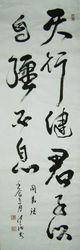 天行健君子以
自强不息
周易語